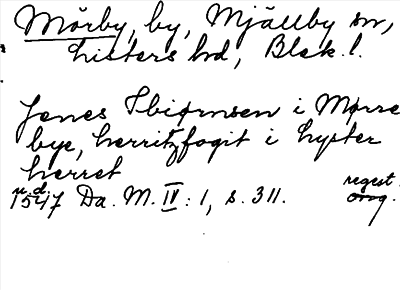 Mörby, by, Mjällby sn,
Listers hd, Blek. l.
Jenes Tbiørnsen i Mørre
bye, herritzfogit i Lyster
herret
u.d. regest.
1547 Da. M. IV: 1, s. 311. orig.